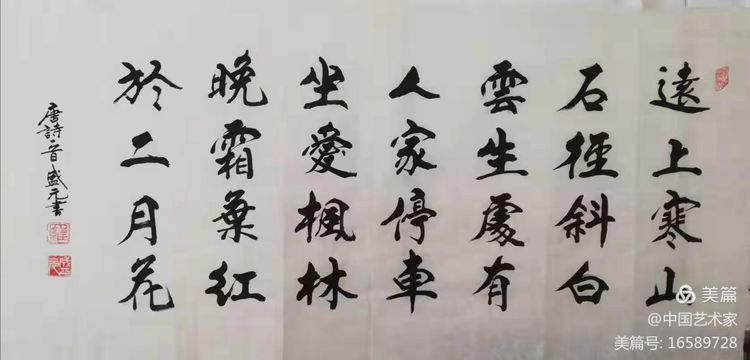 遠上寒山
石徑斜白
雲生處有
人家停車
坐愛楓林
晚霜葉紅
於二月花
唐詩一首盛元書
美篇
@中国艺术家
美篇号: 16589728